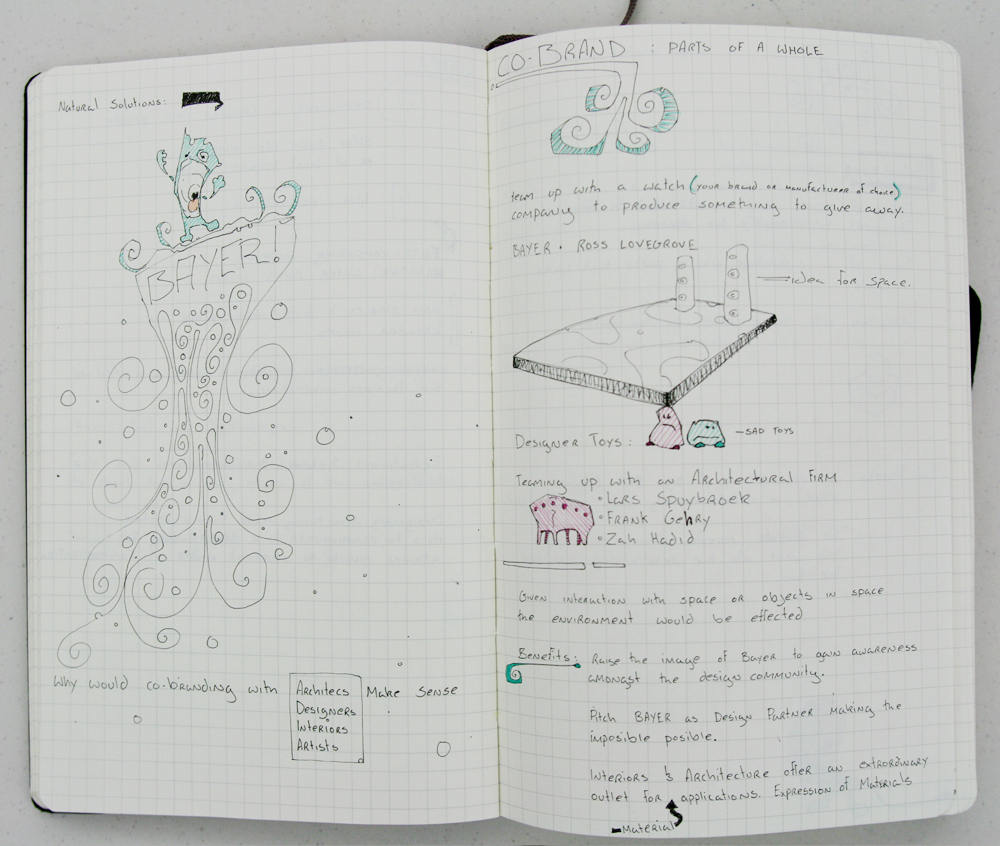 Natural Solutions:
BAYER!
Why would co-branding with Architecs Make Sense
Designers
Interiors
Artists
CO-BRAND : PARTS OF A WHOLE
team up with a watch (your brand or manufacturer of choice)
company to produce something to give away.
BAYER · ROSS LOVEGROVE
idea for space.
Designer Toys:
SAD TOYS
Teaming up with an Architectural Firm
• Lars Spuybroek
• Frank Gehry
• Zah Hadid
Given interaction with space or objects in space
the environment would be effected
Benefits: Raise the image of Bayer to gain awareness
amongst the design community.
Pitch BAYER as Design Partner making the
imposible posible.
Interiors & Architecture offer an extrordinary
outlet for applications. Expression of Materials
Material